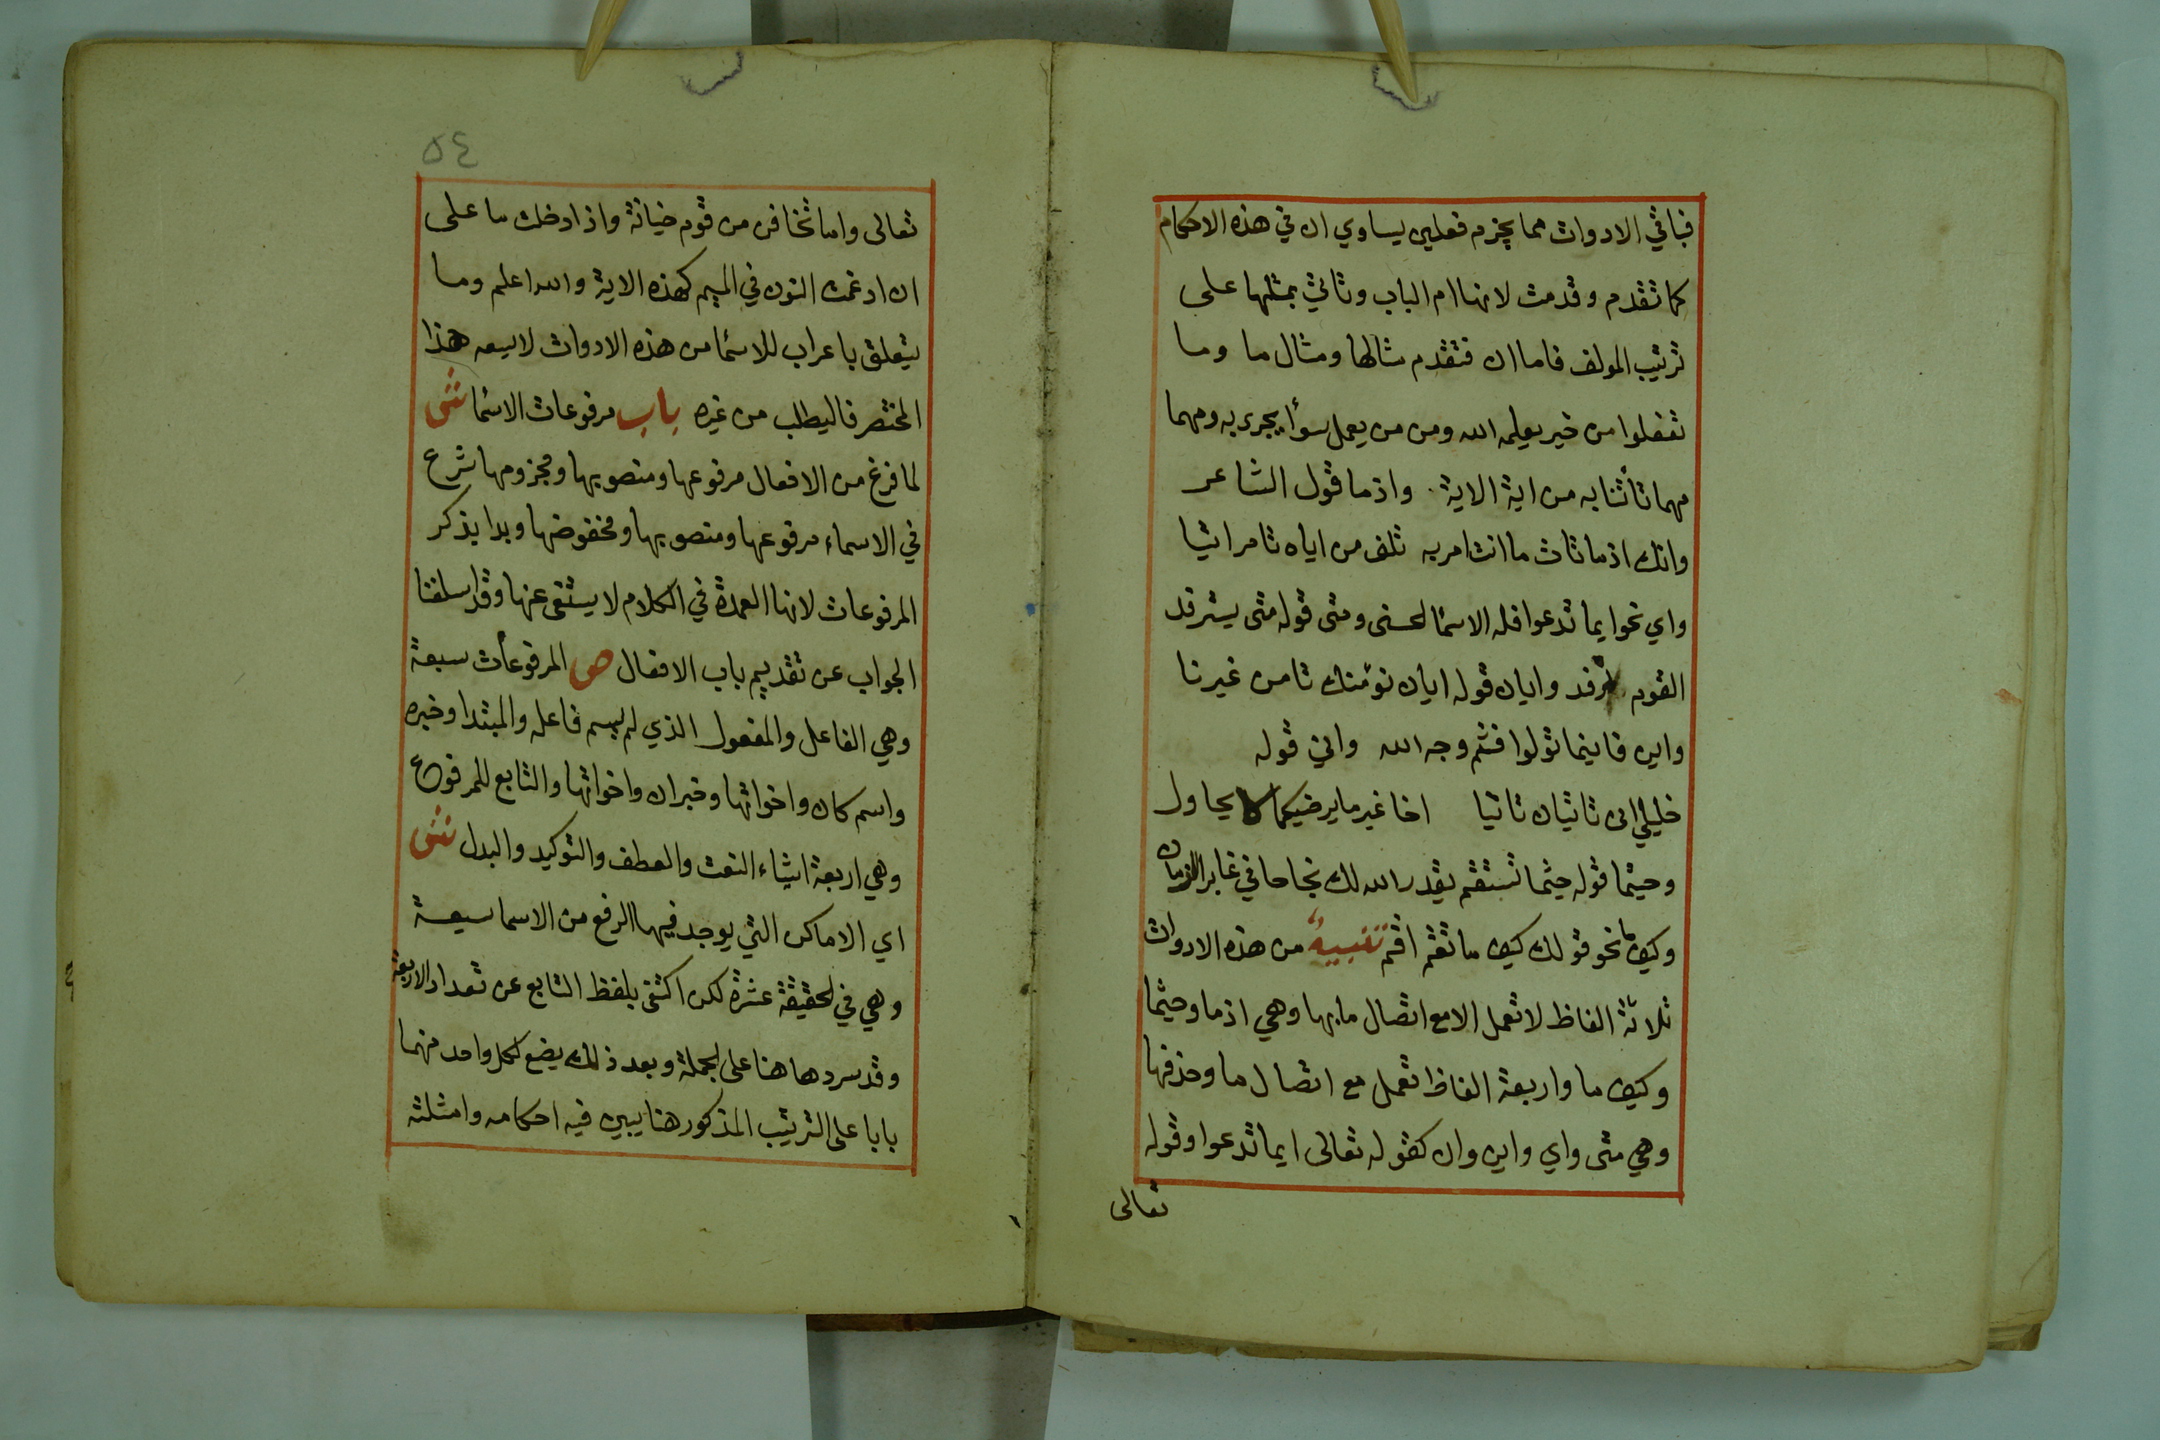 فباقي الادوات مما يجزم فعلين يساوي ان في هذه الاحكام
كما تقدم وقدمت لانها ام الباب وتاتي بمثلها على
ترتيب المولف فاما ان فتقدم مثالها ومثال ما وما
تفعلوا من خير يعلمه الله ومن من يعمل سوأ يجزى به ومهما
مهما تأتنا به من اية الاية . واذما قول الشاعر
وانك اذما تات ما انت امر به تلف من اياه تامر اتيا
واي نحو ايما تدعوا فله الاسما الحسنى ومتى قوله متى يسترفد
القوم ارفد وايان قوله ايان نؤمنك تامن غيرنا
واين فاينما تولوا فثم وجه الله واني قوله
خليلي انى تاتيان تاتيا اخا غير ما يرضيكما لا يحاول
وحيثما قوله حيثما تستقم يقدر الله لك نجاحا في غابر الازمان
وكيفما نحو قولك كيف ما تقم اقم تنبيه من هذه الادوات
ثلاثة الفاظ لا تعمل الا مع اتصال ما بها وهي اذما وحيثما
وكيف ما واربعة الفاظ تعمل مع اتصال ما وحذفها
وهي متى واي واين وان كقوله تعالى ايما تدعوا وقوله
تعالى
٥٤
تعالى واما تخافن من قوم خيانة واذا دخلت ما على
ان ادغمت النون في الميم كهذه الاية والله اعلم وما
يتعلق باعراب للاسما من هذه الادوات لا يسعه هذا
المختصر فاليطلب من غيره باب مرفوعات الاسما ش
لما فرغ من الافعال مرفوعها ومنصوبها ومجزومها شرع
في الاسماء مرفوعها ومنصوبها ومخفوضها وبدا يذكر
المرفوعات لانها العمدة في الكلام لا يستغى عنها وقد اسلفنا
الجواب عن تقديم باب الافعال ص المرفوعات سبعة
وهي الفاعل والمفعول الذي لم يسم فاعله والمبتدا وخبره
واسم كان واخواتها وخبر ان واخواتها والتابع للمرفوع
وهي اربعة اشياء النعت والعطف والتوكيد والبدل ش
اي الاماكن التي يوجد فيها الرفع من الاسما سبعة
وهي في الحقيقة عشرة لكن اكتفى بلفظ التابع عن تعداد الاربعة
وقد سردها هنا على الجملة وبعد ذلك يضع لكل واحد منهما
بابا على الترتيب المذكور هنا يبين فيه احكامه وامثلته